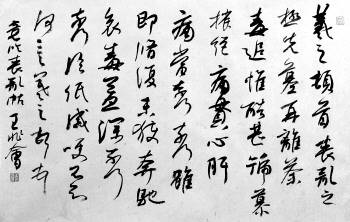 羲之頓首喪亂之
極先墓再離荼
毒追惟酷甚號慕
摧絕痛貫心肝
痛當奈何奈何雖
即脩復未獲奔馳
哀毒益深奈何
奈何臨紙感哽不知
何言羲之頓首
喪亂帖 王